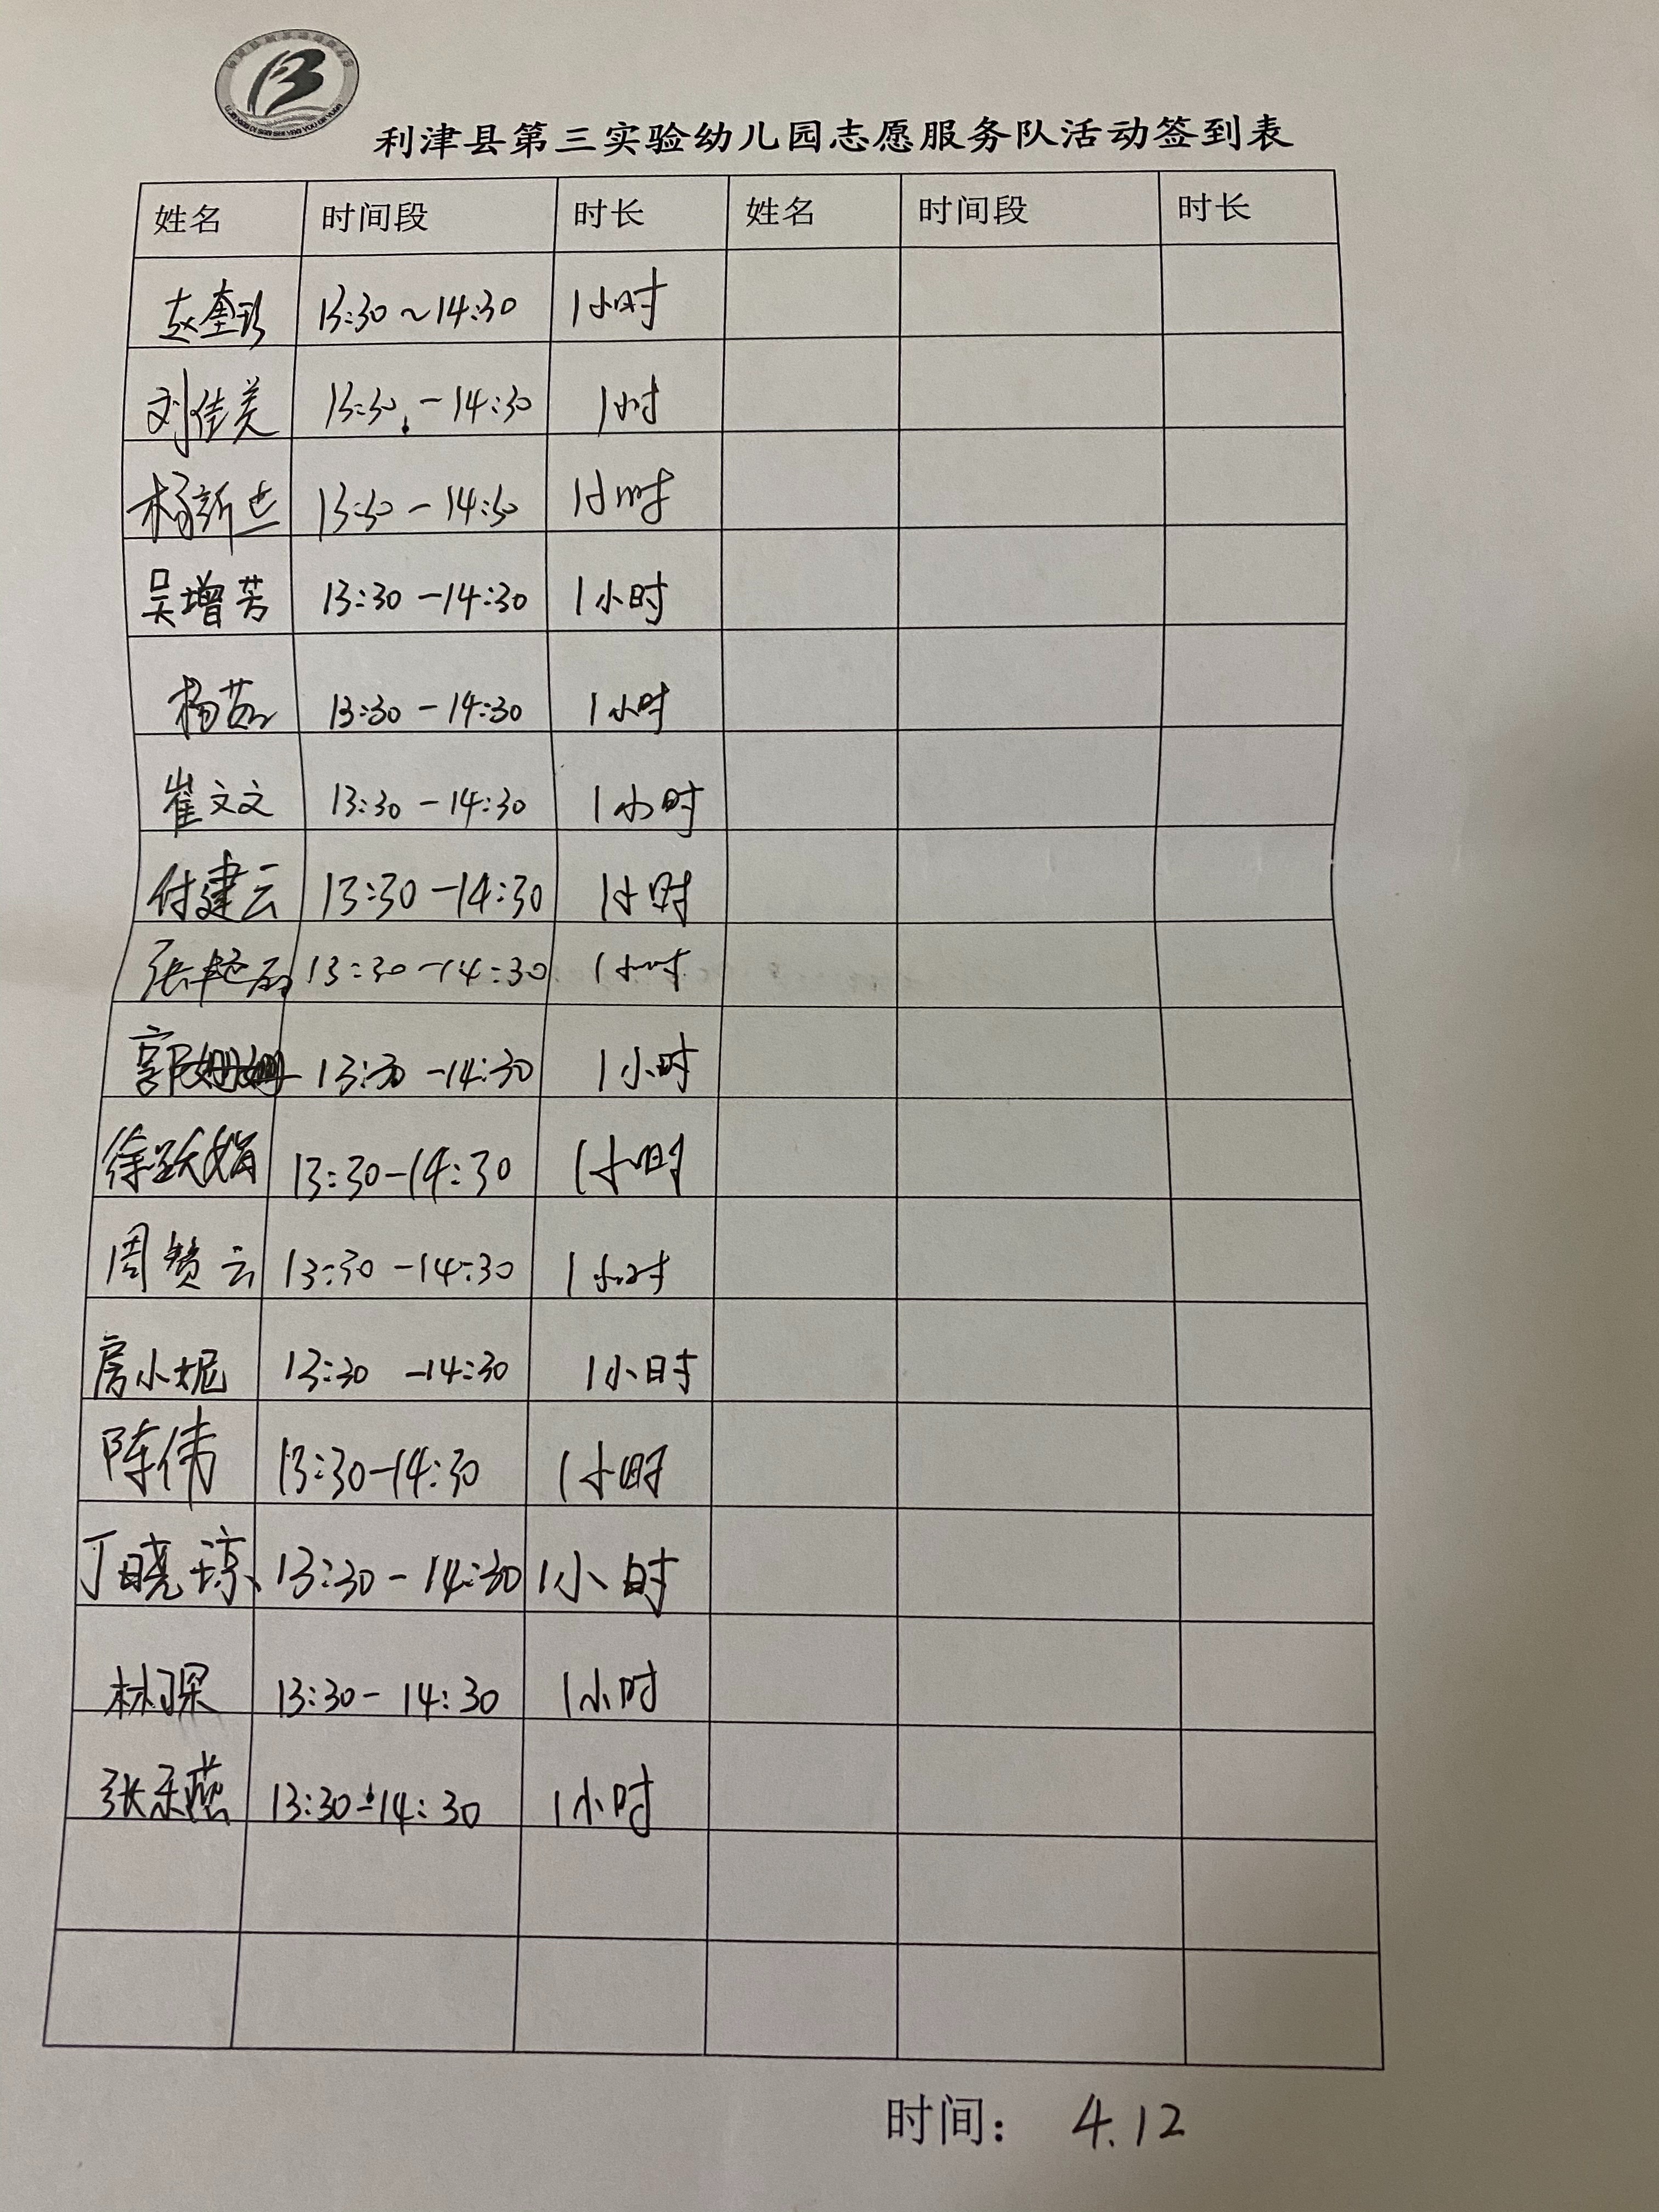 利津县第三实验幼儿园志愿服务队活动签到表
姓名 时间段 时长 姓名 时间段 时长
赵奎珍 13:30~14:30 1小时
刘佳美 13:30-14:30 1小时
杨新 13:30-14:30 1小时
吴增芳 13:30-14:30 1小时
杨茹 13:30-14:30 1小时
崔文文 13:30-14:30 1小时
付建云 13:30-14:30 1小时
张艳丽 13:30-14:30 1小时
郭姗姗 13:30-14:30 1小时
徐跃娟 13:30-14:30 1小时
周赞云 13:30-14:30 1小时
房小妮 13:30-14:30 1小时
陈伟 13:30-14:30 1小时
丁晓琼 13:30-14:30 1小时
林琛 13:30-14:30 1小时
张乐燕 13:30-14:30 1小时
时间: 4.12